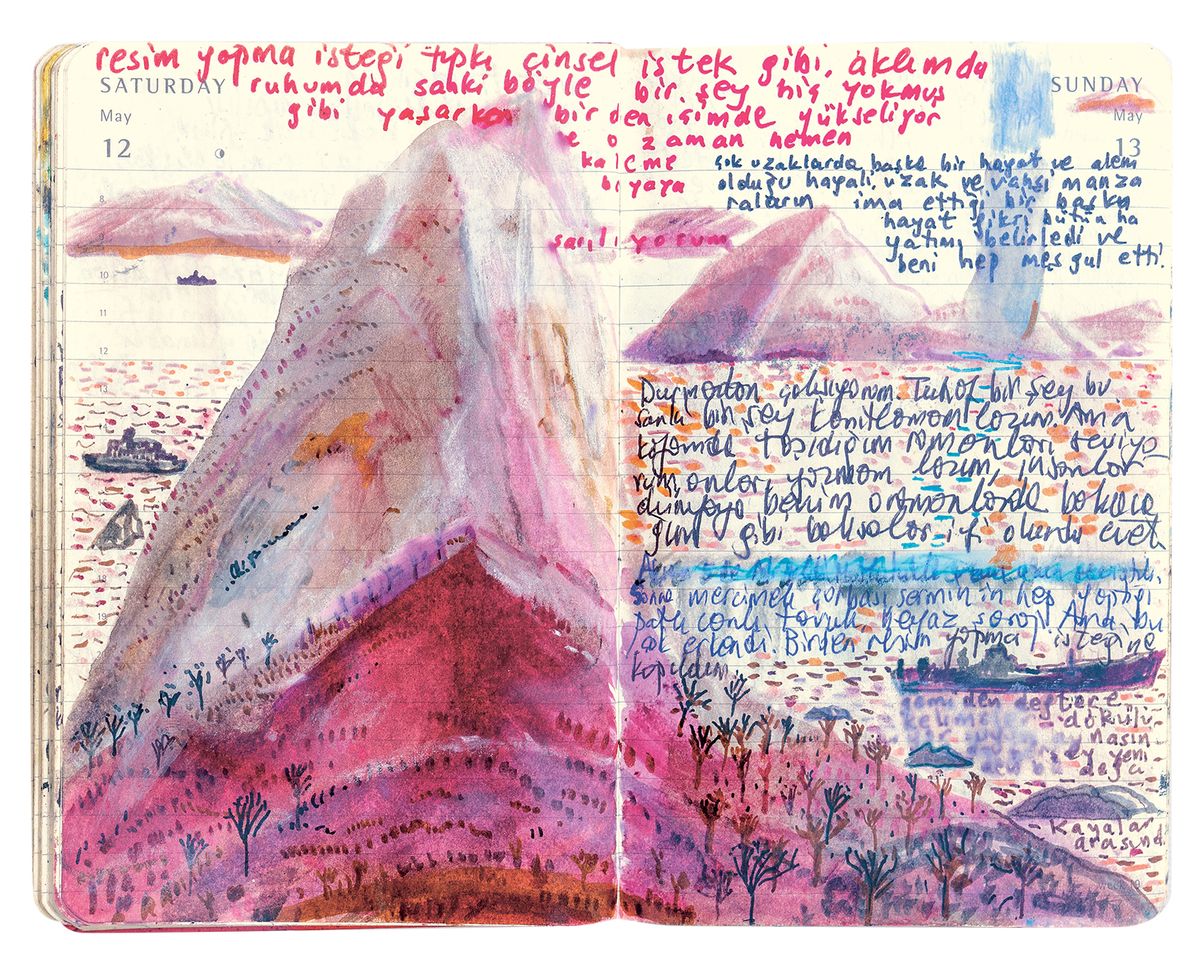 resim yapma isteği tıpkı cinsel istek gibi, aklımda
SATURDAY
ruhumda sanki böyle bir şey hiç yokmuş
SUNDAY
May
gibi yaşarken birden içimde yükseliyor
May
12
ve o zaman hemen
13
kaleme
boyaya
sarılıyorum
çok uzaklarda başka bir hayat ve alem
olduğu hayali, uzak ve vahşi manza
raların ima ettiği bir başka
hayat fikri bütün ha
yatımı belirledi ve
beni hep meşgul etti.
8
9
10
11
12
13
Durmadan çalışıyorum. Tuhaf bir şey bu
sanki bir şey kanıtlamam lazım. Ama
kafamda taşıdığım romanları seviyo
rum, onları yazmam lazım, insanlar
dünyaya benim ormanlarda
gibi baksalar iyi olurdu evet
18
19
Sonra mercimek çorbası hep yaptığı
tavuk beyaz Ama bu
Birden resim yapma isteğine
kapıldım
gemiden deftere
kelimeler dökülü
Kayalar
arasınd
week 19